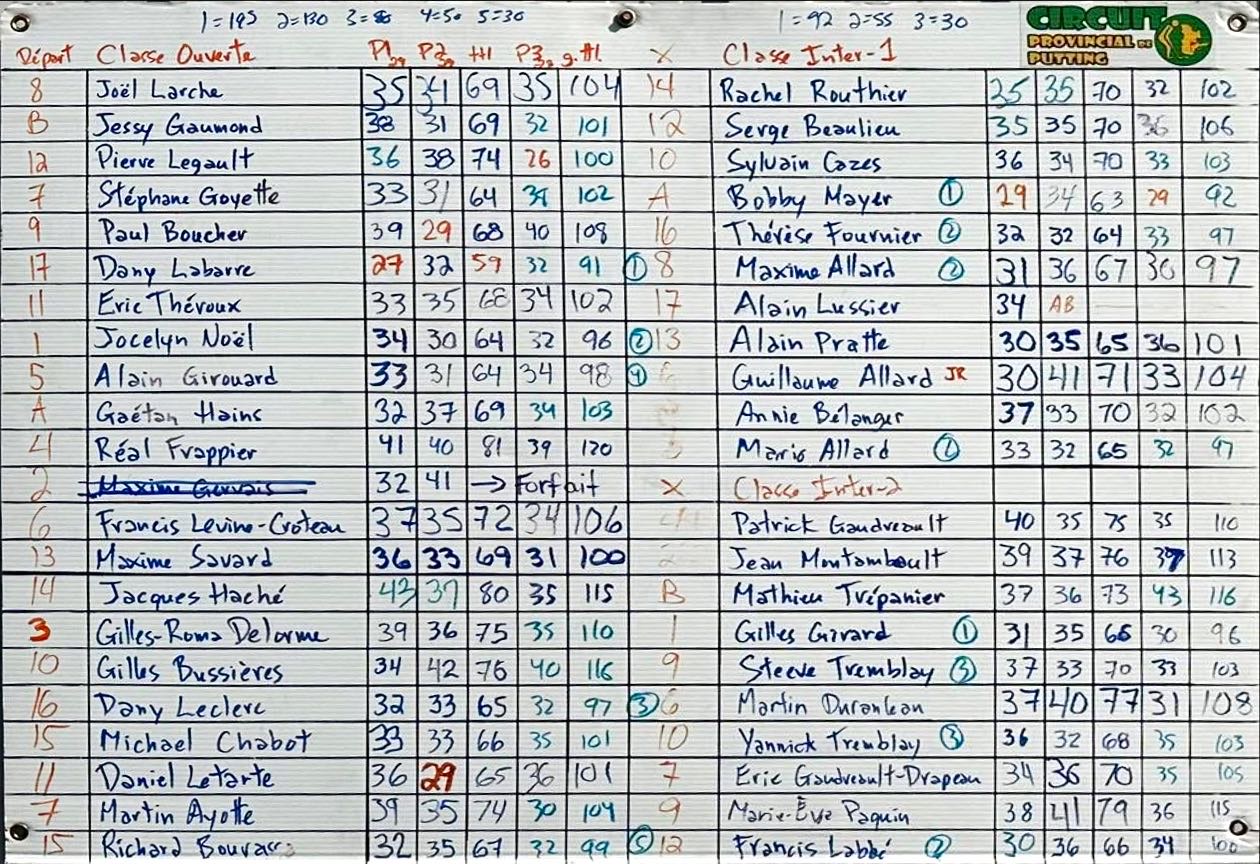 1=195 2=130 3=80 4=50 5=30 1=92 2=55 3=30 CIRCUIT PROVINCIAL DE PUTTING
Départ Classe Ouverte P1 29 P2 ttl P3 g.ttl X Classe Inter-1
8 Joël Larche 35 34 69 35 104 14 Rachel Routhier 25 35 70 32 102
B Jessy Gaumond 38 31 69 32 101 12 Serge Beaulieu 35 35 70 36 106
12 Pierre Legault 36 38 74 26 100 10 Sylvain Cazes 36 34 70 33 103
7 Stéphane Goyette 33 31 64 38 102 A Bobby Mayer ① 29 34 63 29 92
9 Paul Boucher 39 29 68 40 108 16 Thérèse Fournier ② 32 32 64 33 97
17 Dany Labarre 27 32 59 32 91 ① 8 Maxime Allard ② 31 36 67 30 97
11 Eric Théroux 33 35 68 34 102 17 Alain Lussier 34 AB
1 Jocelyn Noël 34 30 64 32 96 ② 13 Alain Pratte 30 35 65 36 101
5 Alain Girouard 33 31 64 34 98 ④ 6 Guillaume Allard JR 30 41 71 33 104
A Gaétan Hains 32 37 69 34 103 Annie Bélanger 37 33 70 32 102
4 Réal Frappier 41 40 81 39 120 3 Mario Allard ② 33 32 65 32 97
2 Maxime Gervais 32 41 → Forfait X Classe Inter-2
6 Francis Levine-Croteau 37 35 72 34 106 4 Patrick Gaudreault 40 35 75 35 110
13 Maxime Savard 36 33 69 31 100 2 Jean Montambault 39 37 76 37 113
14 Jacques Haché 43 37 80 35 115 B Mathieu Trépanier 37 36 73 43 116
3 Gilles-Roma Delorme 39 36 75 35 110 1 Gilles Girard ① 31 35 66 30 96
10 Gilles Bussières 34 42 76 40 116 9 Steeve Tremblay ③ 37 33 70 33 103
16 Dany Leclerc 32 33 65 32 97 ③ 6 Martin Duranleau 37 40 77 31 108
15 Michael Chabot 33 33 66 35 101 10 Yannick Tremblay ③ 36 32 68 35 103
11 Daniel Letarte 36 29 65 36 101 7 Eric Gaudreault-Drapeau 34 36 70 35 105
7 Martin Ayotte 39 35 74 30 104 9 Marie-Ève Paquin 38 41 79 36 115
15 Richard Bourassa 32 35 67 32 99 ⑤ 12 Francis Labbé ② 30 36 66 34 100